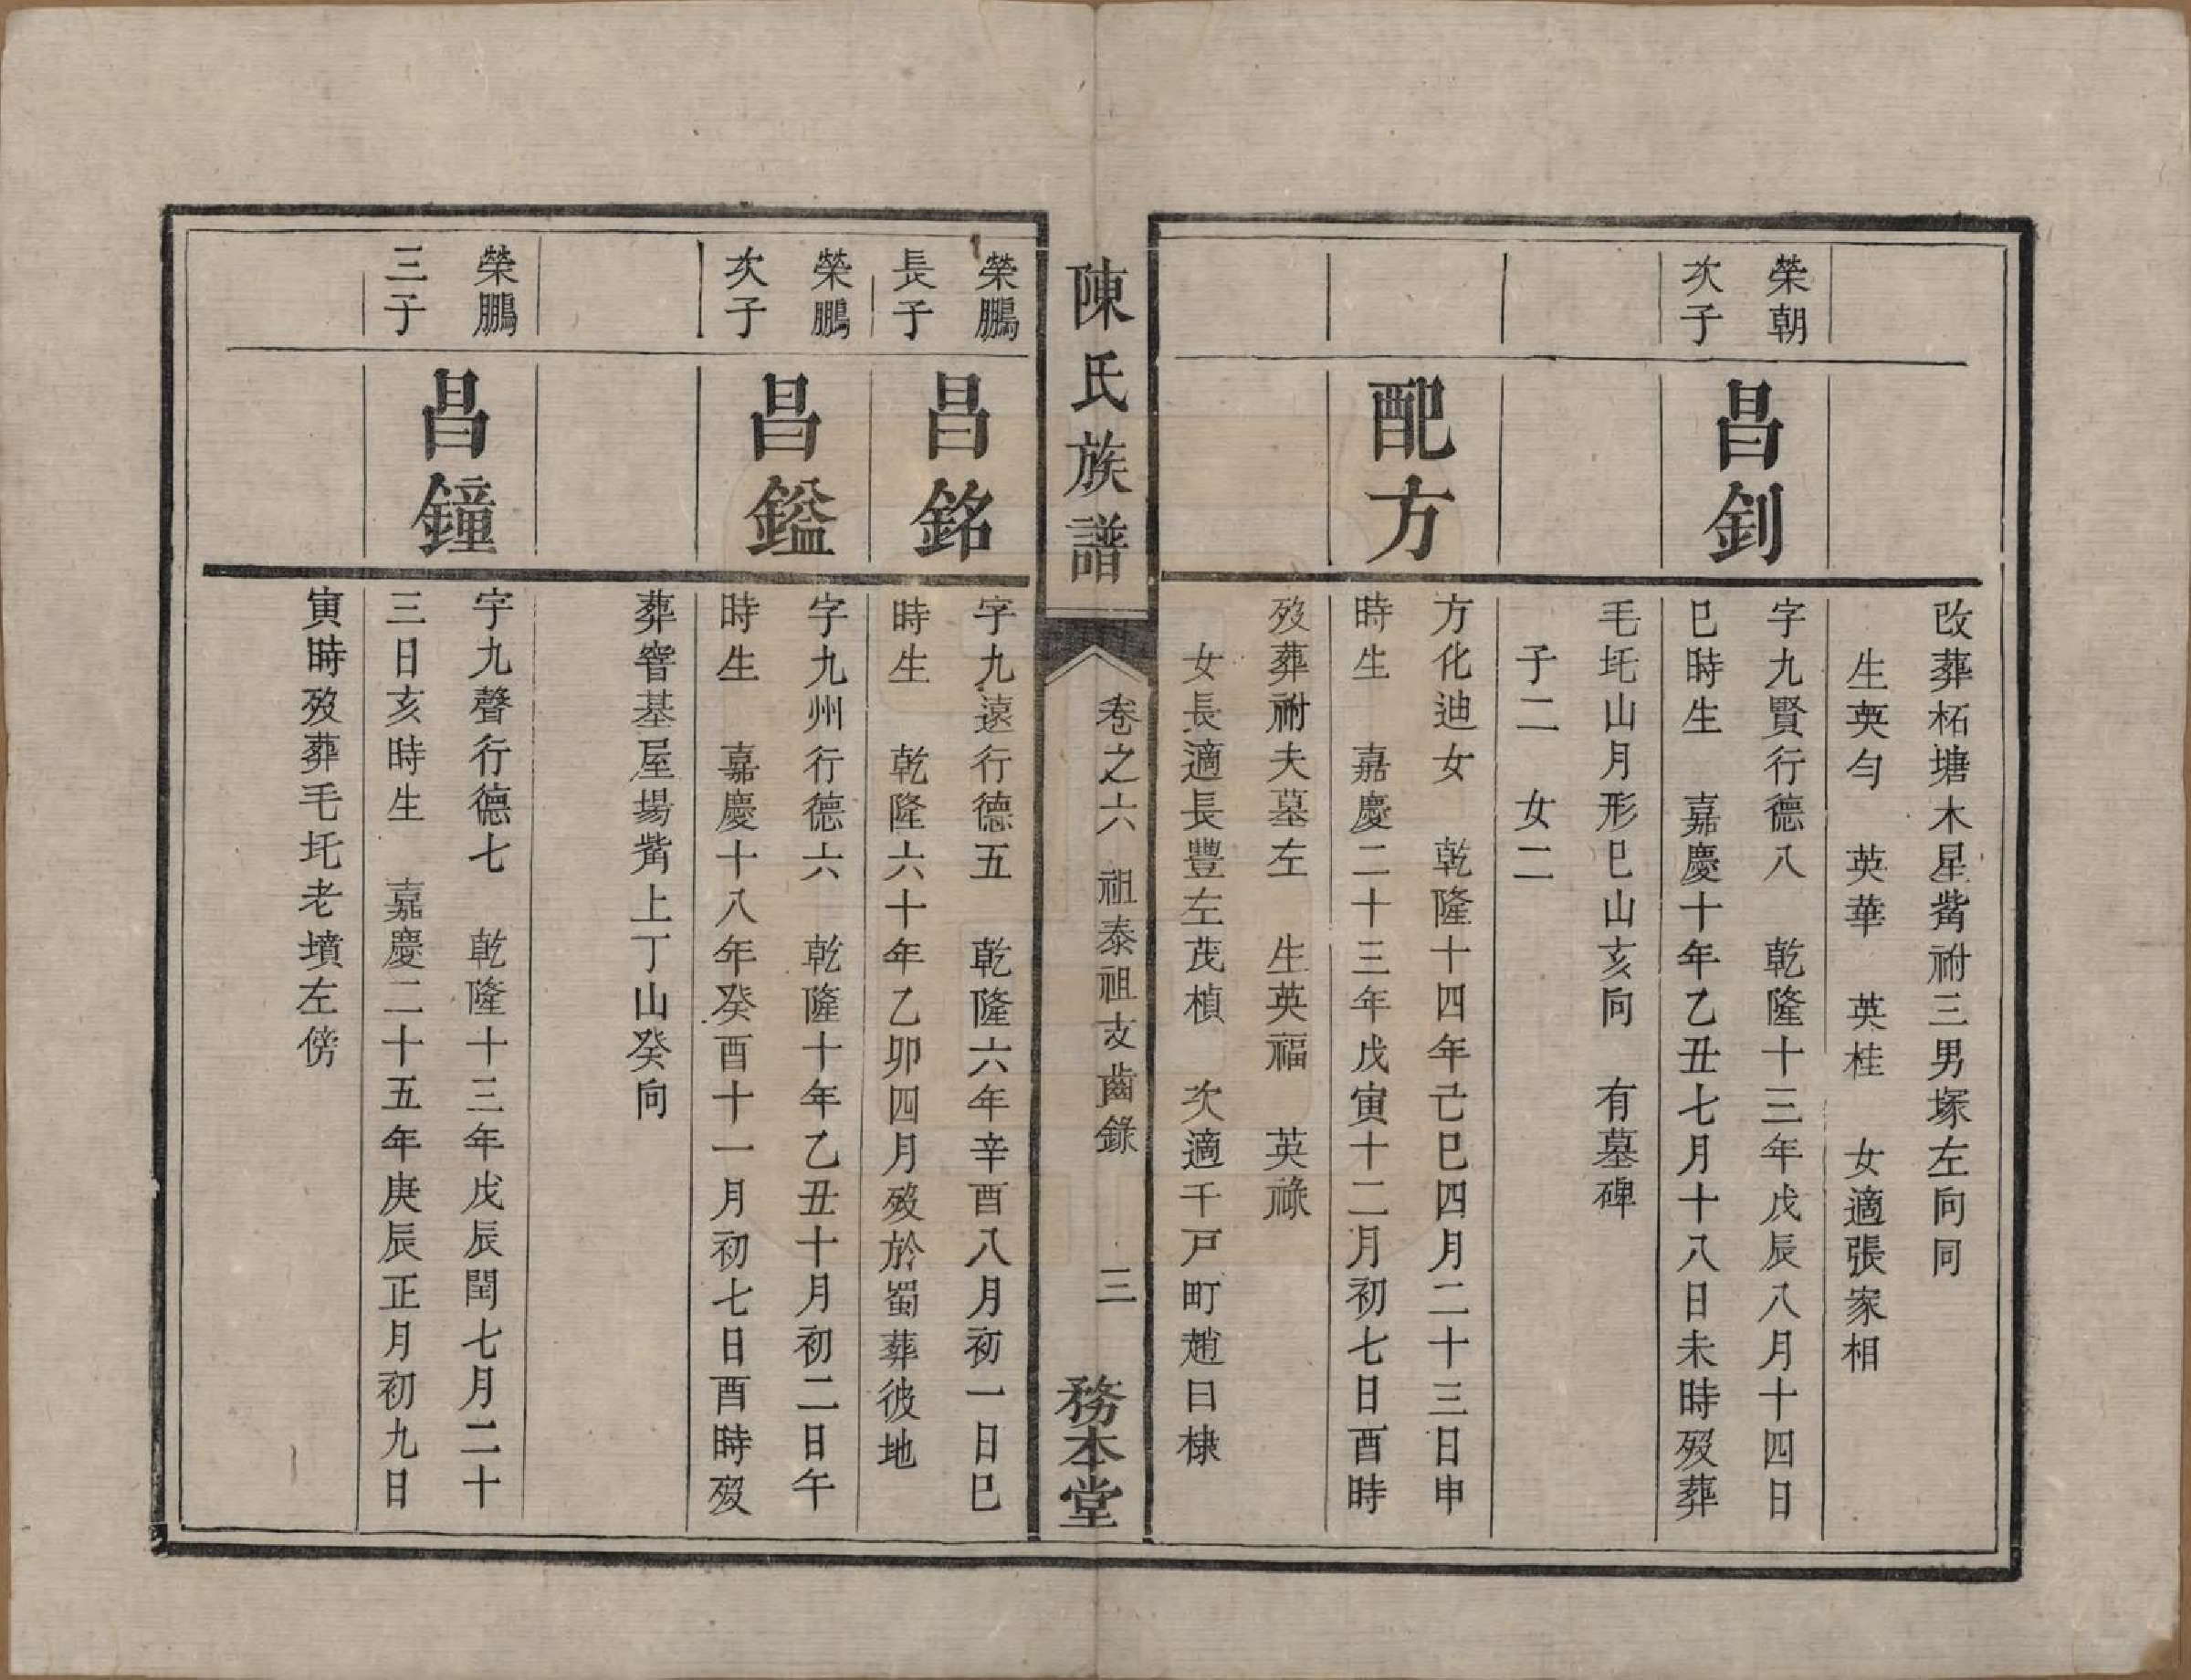 改葬柘塘木星觜祔三男塚左向同
生英勻　英華　英桂　女適張家相
榮朝
次子
昌釗
字九賢行德八　乾隆十三年戊辰八月十四日
巳時生　嘉慶十年乙丑七月十八日未時歿葬
毛圫山月形巳山亥向　有墓碑
子二　女二
配方
方化迪女　乾隆十四年己巳四月二十三日申
時生　嘉慶二十三年戊寅十二月初七日酉時
歿葬祔夫墓左　生英福　英祿
女長適長豐左茂楨　次適千戸町趙日棣
陳氏族譜
卷之六　祖泰祖支齒錄　三
務本堂
榮鵬
長子
昌銘
字九遠行德五　乾隆六年辛酉八月初一日巳
時生　乾隆六十年乙卯四月歿於蜀葬彼地
榮鵬
次子
昌鎰
字九州行德六　乾隆十年乙丑十月初二日午
時生　嘉慶十八年癸酉十一月初七日酉時歿
葬窨基屋場觜上丁山癸向
榮鵬
三子
昌鐘
字九聲行德七　乾隆十三年戊辰閏七月二十
三日亥時生　嘉慶二十五年庚辰正月初九日
寅時歿葬毛圫老墳左傍